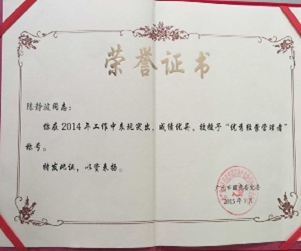 荣誉证书
陈静波同志：
你在2014年工作中表现突出，成绩优异，被授予“优秀经营管理者”
称号。
特发此证，以资表扬。
2015年1月